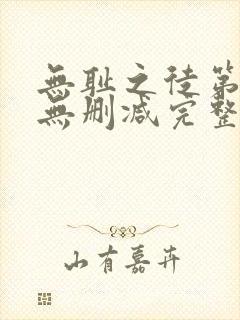 無耻之徒第
無删减完整
山有嘉卉